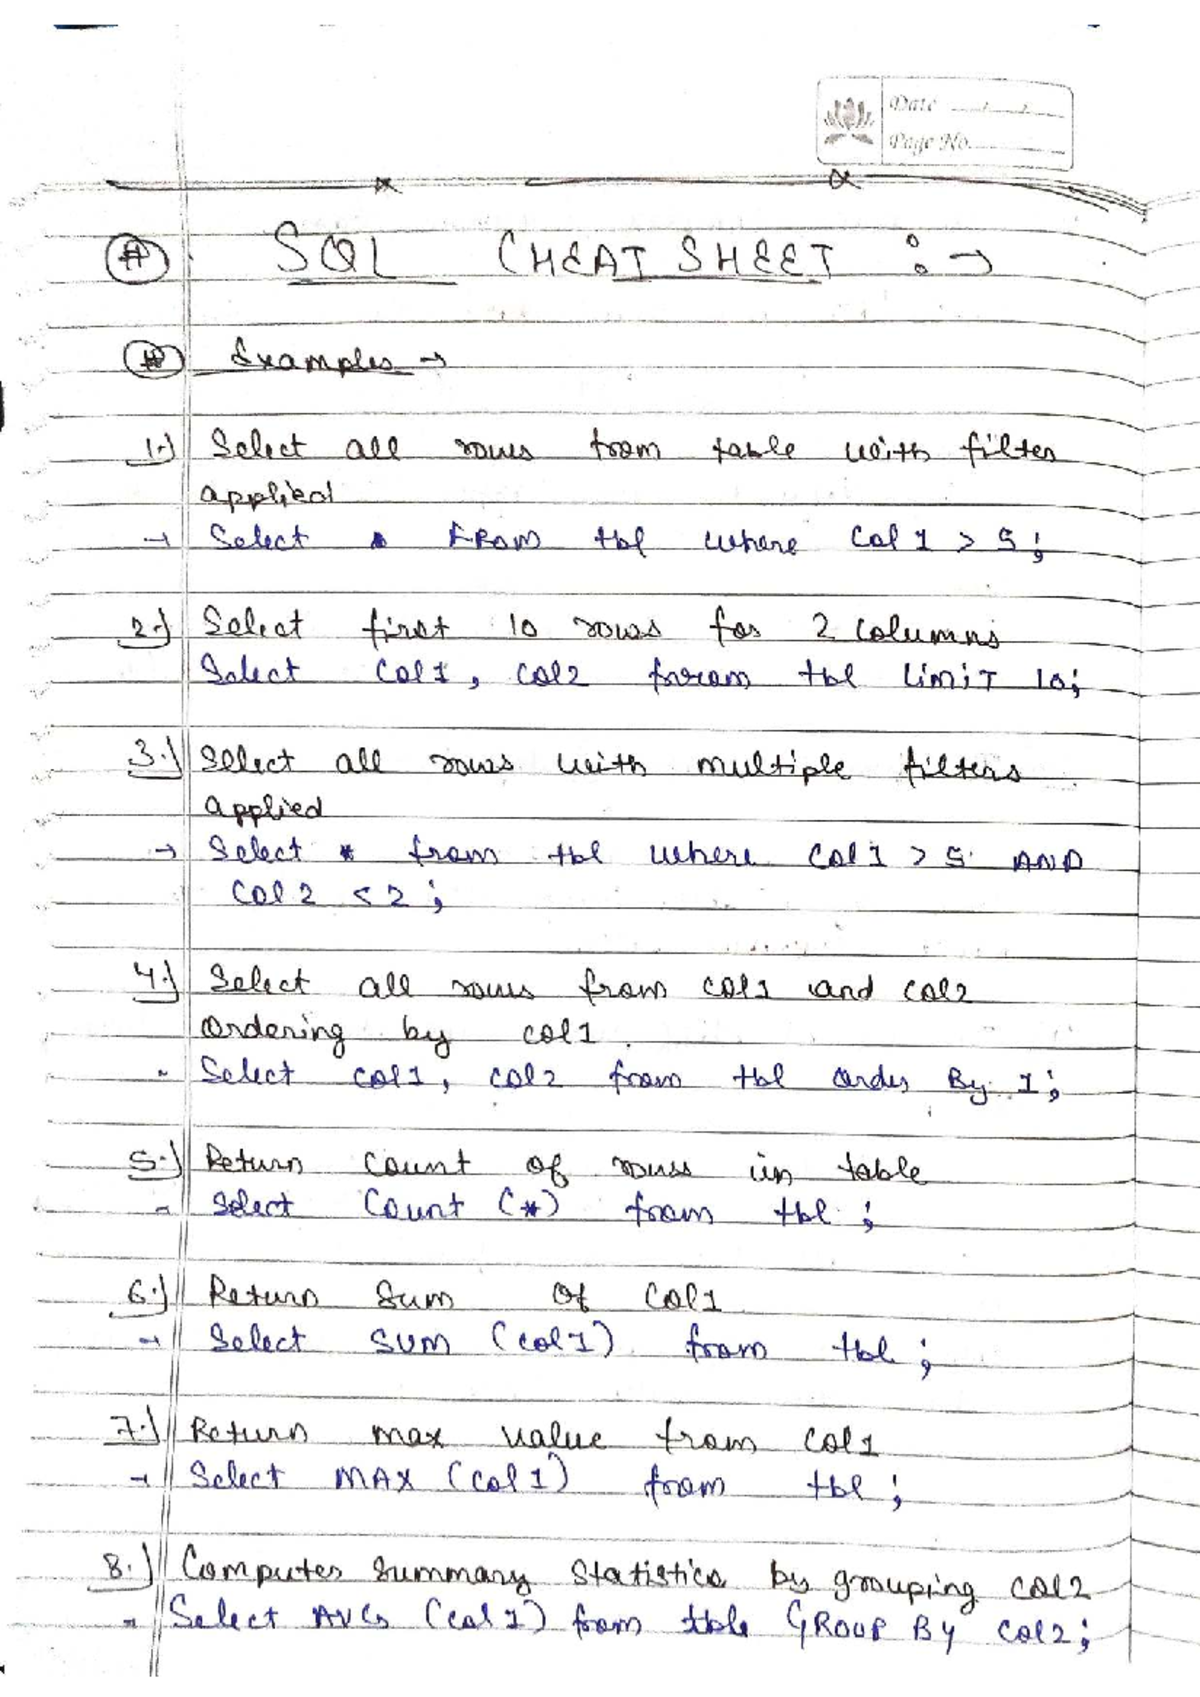 Date
Page No.
# SQL CHEAT SHEET :→
# Examples →
1.) Select all rows from table with filter
applied
→ Select * FROM tbl where Col 1 > 5;
2.) Select first 10 rows for 2 columns
Select Col1, Col2 from tbl LIMIT 10;
3.) Select all rows with multiple filters
applied
→ Select * from tbl where Col 1 > 5 AND
Col 2 < 2;
4.) Select all rows from col1 and col2
ordering by col1.
Select col1, col2 from tbl order By 1;
5.) Return count of rows in table
→ Select Count (*) from tbl;
6.) Return Sum of Col1
→ Select SUM (col1) from tbl;
7.) Return max value from col1
→ Select MAX (col1) from tbl;
8.) Computer summary statistics by grouping col2
Select AVG (col1) from tble GROUP BY col2;